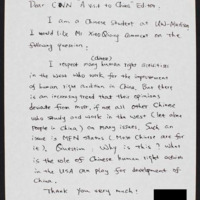 Dear CNN A visit to China Editor,
I am a Chinese Student at UW-Madison
I would like Mr Xiao Qiang comment on the
following question:
(admire)
I respect many human right activities
in the west who work for the improvement
of human right condition in China. But there
is an recurring trend that their opinions
deviate from most, if not all other Chinese
who study and work in the west (let alone
people in China) on many issues. Such an
issue is MFN status (Most Chinese are for
it). Question: Why is this? What
is the role of Chinese human right activists
in the USA can play for development of
China.
Thank you very much!